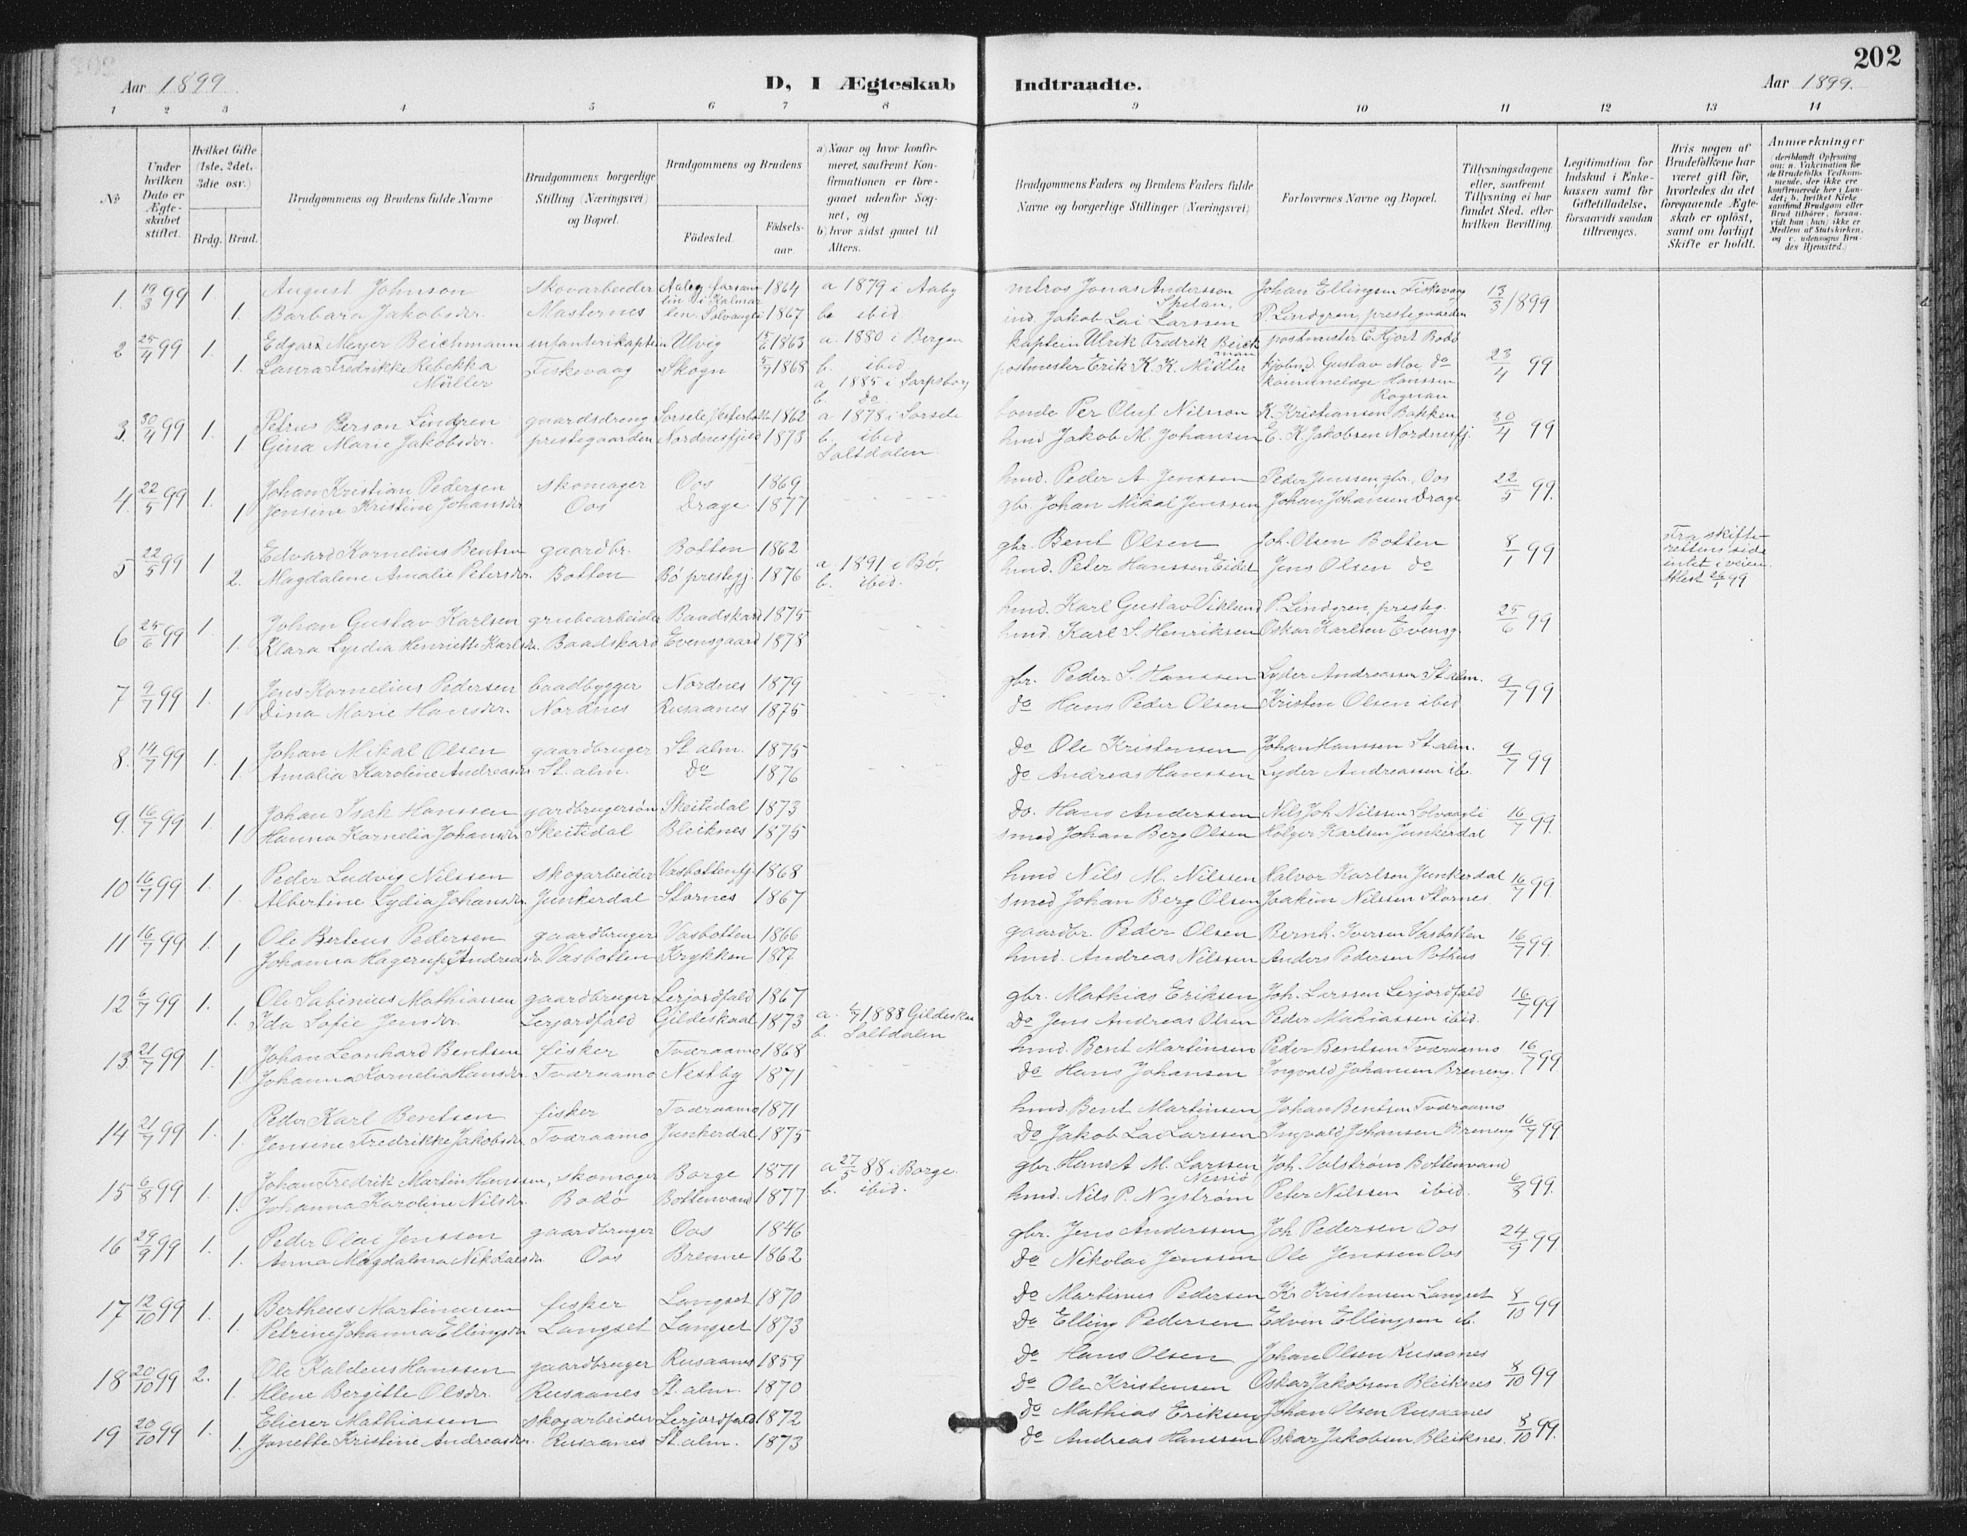 202
Aar 1899
D, I Ægteskab Indtraadte.
Aar 1899.
1 2 3 4 5 6 7 8 9 10 11 12 13 14
№
Under hvilken Dato er Ægteskabet stiftet.
Hvilket Gifte (1ste, 2det, 3die osv.)
Brdg. Brud.
Brudgommens og Brudens fulde Navne
Brudgommens borgerlige Stilling (Næringsvei) og Bopæl.
Brudgommens og Brudens
Fødested.
Fødselsaar.
a) Naar og hvor konfirmeret, saafremt Konfirmationen er foregaaet udenfor Sognet, og
b) hvor sidst gaaet til Alters.
Brudgommens Faders og Brudens Faders fulde Navne og borgerlige Stillinger (Næringsvei)
Forlovernes Navne og Bopæl.
Tillysningsdagene eller, saafremt Tillysning ei har fundet Sted, efter hvilken Bevilling.
Legitimation for Indskud i Enkekassen samt for Giftetilladelse, forsaavidt sandan tiltrænges.
Hvis nogen af Brudefolkene har været gift før, hvorledes da det foregaaende Ægteskab er opløst, samt om lovligt Skifte er holdt.
Anmærkninger
1. 19/3 99 1. August Johnson skovarbeider 1864 a 1879 i Aaby matros Jonas Andersson Johan Ellingsen Fiskevaag 13/3 1899
1. Barbara Jakobsdr. Masternes 1867 b. ibid ind. Jakob Lai Larssen P. Lindgren, prestegaarden
2 25/4 99 1. Edgar Meyer Beichmann infanterikaptein Ulvig 1863 a. 1880 i Bergen kaptein Ulrik Fredrik Beichman postmester E. Hjort Bodø 23/4 99
1. Laura Fredrikke Rebekka Müller Fiskevaag Skogn 5/7 1868 b. ibid postmester Erik K. K. Müller kjøbmd. Gustav Moe do
a. 1885 i Sarpsborg kommunelæge Hanssen
b. do Rognan
3. 30/4 99 1. Petrus Person Lindgren gaardsdreng 1862 a 1878 i Sorsele bonde Per Oluf Nilsson K. Kristiansen Bakken 30/4 99
1 Gina Marie Jakobsdr. prestegaarden Nordnesfjeld 1873 b. ibid hmd Jakob M. Johansen E. K. Jakobsen Nordnesfj.
Saltdalen
4. 22/5 99 1. Johan Kristian Pedersen skomager Oos 1869 hmd. Peder A. Jenssen Peder Jenssen, gbr. Oos 22/5 99.
1 Jensine Kristine Johansdr Oos Drage 1877 gbr. Johan Nikal Jenssen Johan Johansen Drage
5 22/5 99 1 Edvard Kornelius Bentsen gaardbr. Botten 1862 gbr. Bent Olsen Joh. Olsen Botten 8/1 99 Fra skifterettens side intet i veien.
2. Magdalene Amalie Petersdr. Botten Bø prestegj. 1876 a. 1891 i Bø. b. ibid. hmd. Peter Hanssen Eidet Jens Olsen do
6 25/6 99 1. Johan Gustav Karlsen grubearbeider Baadskard 1875 hmd. Karl Gustav Viklund P. Lindgren, presteg. 25/6 99
1. Klara Lydia Henriette Karlsdr. Baadskard Evensgaard 1878 hmd. Karl S. Henriksen Oskar Karlsen Evensg.
7 9/7 99 1. Jens Kornelius Pedersen baadbygger Nordnes 1879 gbr. Peder S. Hanssen Lyder Andreassen St. alm. 9/7 99
1 Dina Marie Hansdr. Nordnes Rusaanes 1875 do Hans Peder Olsen Kristen Olsen ibid
8. 14/7 99 1. Johan Mikal Olsen gaardbruger St. alm. 1875 do Ole Kristensen Johan Hanssen St. alm. 9/7 99
1 Amalia Karoline Andreasdr. St. alm. Do 1876 do Andreas Hanssen Lyder Andreassen ib.
9. 16/7 99 1. Johan Isak Hanssen gaardbrugersøn Skeitidal 1873 do. Hans Anderssen Nils Joh. Nilssen Solvaagli 16/7 99.
1 Hanna Kornelia Johansdr Skeitidal Bleiknes 1875 smed Johan Berg Olsen Holger Karlsen Junkerdal
10 16/7 99 1. Peder Ludvig Nilssen skogarbeider Vasbottenfj. 1868 hmd Nils M. Nilssen Halvor Karlsen Junkerdal 16/7 99.
1 Albertine Lydia Johansdr Junkerdal Stornes 1867 smed Johan Berg Olsen Joakim Nilssen Stornes
11 16/7 99 1. Ole Berteus Pedersen gaardbruger Vasbotten 1866 gaardbr. Peder Olsen Bernh. Iversen Vasbotten 16/7 99.
1 Johanna Hagerup Andreasdr Vasbotten Krykken 1877 hmd. Andreas Nilssen Anders Pedersen Pothus
12 6/7 99 1. Ole Sabinius Mathiassen gaardbruger Lerjordfald 1867 gbr. Mathias Eriksen Joh. Larssen Lerjordfald 16/7 99
1. Ida Sofie Jensdr. Lerjordfald Gildeskaal 1873 a. 1888 Gildeskaal b. Saltdalen Do Jens Andreas Olsen Peder Mathiassen ibid.
13 21/7 99 1. Johan Leonhard Bentsen fisker Tværaamo 1868 hmd. Bent Martinsen Peder Bentsen Tværaamo 16/7 99
1 Johanna Kornelia Hansdr. Tværaamo Nestby 1871 Do Hans Johansen Ingvald Johansen Breneng.
14 21/7 99 1. Peder Karl Bentsen fisker Tværaamo 1871 hmd. Bent Martinsen Johan Bentsen Tværaamo 16/7 99
1. Jensine Fredrikke Jakobsdr. Tværaamo Junkerdal 1875 Do Jakob Lai Larssen Ingvald Johansen Breneng
15 6/8 99 1. Johan Fredrik Martin Hanssen, skomager Borge 1871 a 27/5 88 i Borge. gbr. Hans A. M. Larssen Joh. Valstrøm Bottenvand 6/8 99.
1. Johanna Karoline Nilsdr. Bodø Bottenvand 1877 b. ibid. hmd. Nils P. Nystrøm Peter Nilssen ibid.
16 29/9 99 1. Peder Olai Jenssen gaardbruger Oos 1846 gbr. Jens Anderssen Joh. Pedersen Oos 24/9 99.
1. Anna Magdalena Nikolaisdr Oos Brenne 1862 Do Nikolai Jenssen Ole Jenssen Oos
17 12/10 99 1. Bertheus Martinussen fisker Langset 1870 Do Martinus Pedersen Kr. Kristensen Langset 8/10 99
1. Petrine Johanna Ellingsdr Langset Langset 1873 Do Elling Pedersen Edvin Ellingsen ib.
18 20/10 99 2. Ole Kaldeus Hanssen gaardbruger Rusaanes 1859 Do Hans Olsen Johan Olsen Rusaanes 8/10 99
1. Elene Bergitte Olsdr. Rusaanes St. alm. 1870 Do Ole Kristensen Oskar Jakobsen Bleiknes
19 20/10 99 1. Elieser Mathiassen skogarbeider Lerjordfald 1872 do Mathias Eriksen Johan Olsen Rusaanes 8/10 99.
1. Janette Kristine Andreasdr. Rusaanes St. alm. 1873 Do Andreas Hanssen Oskar Jakobsen Bleiknes.